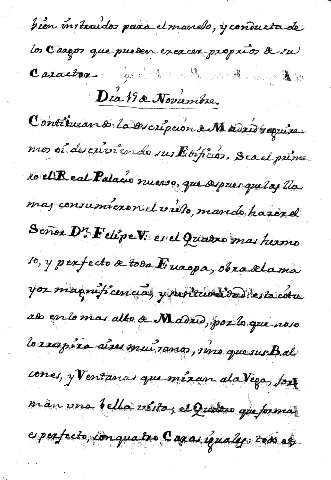 bien instruidos para el manejo, y conducta de
los Cargos que pueden exercer proprios de su
Caracter.
Dia 15 de Noviembre.
Continuando la descripcion de Madrid seguire
mos oi descriviendo sus Edificios. Sea el prime
ro el Real Palacio nuevo, que despues que las lla
mas consumieron el viejo, mandó hacer el
Señor Dn. Felipe V. es el Quadro mas hermo
so, y perfecto de toda Europa, obra de la ma
yor magnificencia, y esta situ
ado en lo mas alto de Madrid, por lo que no so
lo respira aires mui sanos, sino que sus Bal
cones, y Ventanas que miran a la Vega, for
man una bella vista; el Quadro que forma
es perfecto, con quatro Caras iguales: todo el